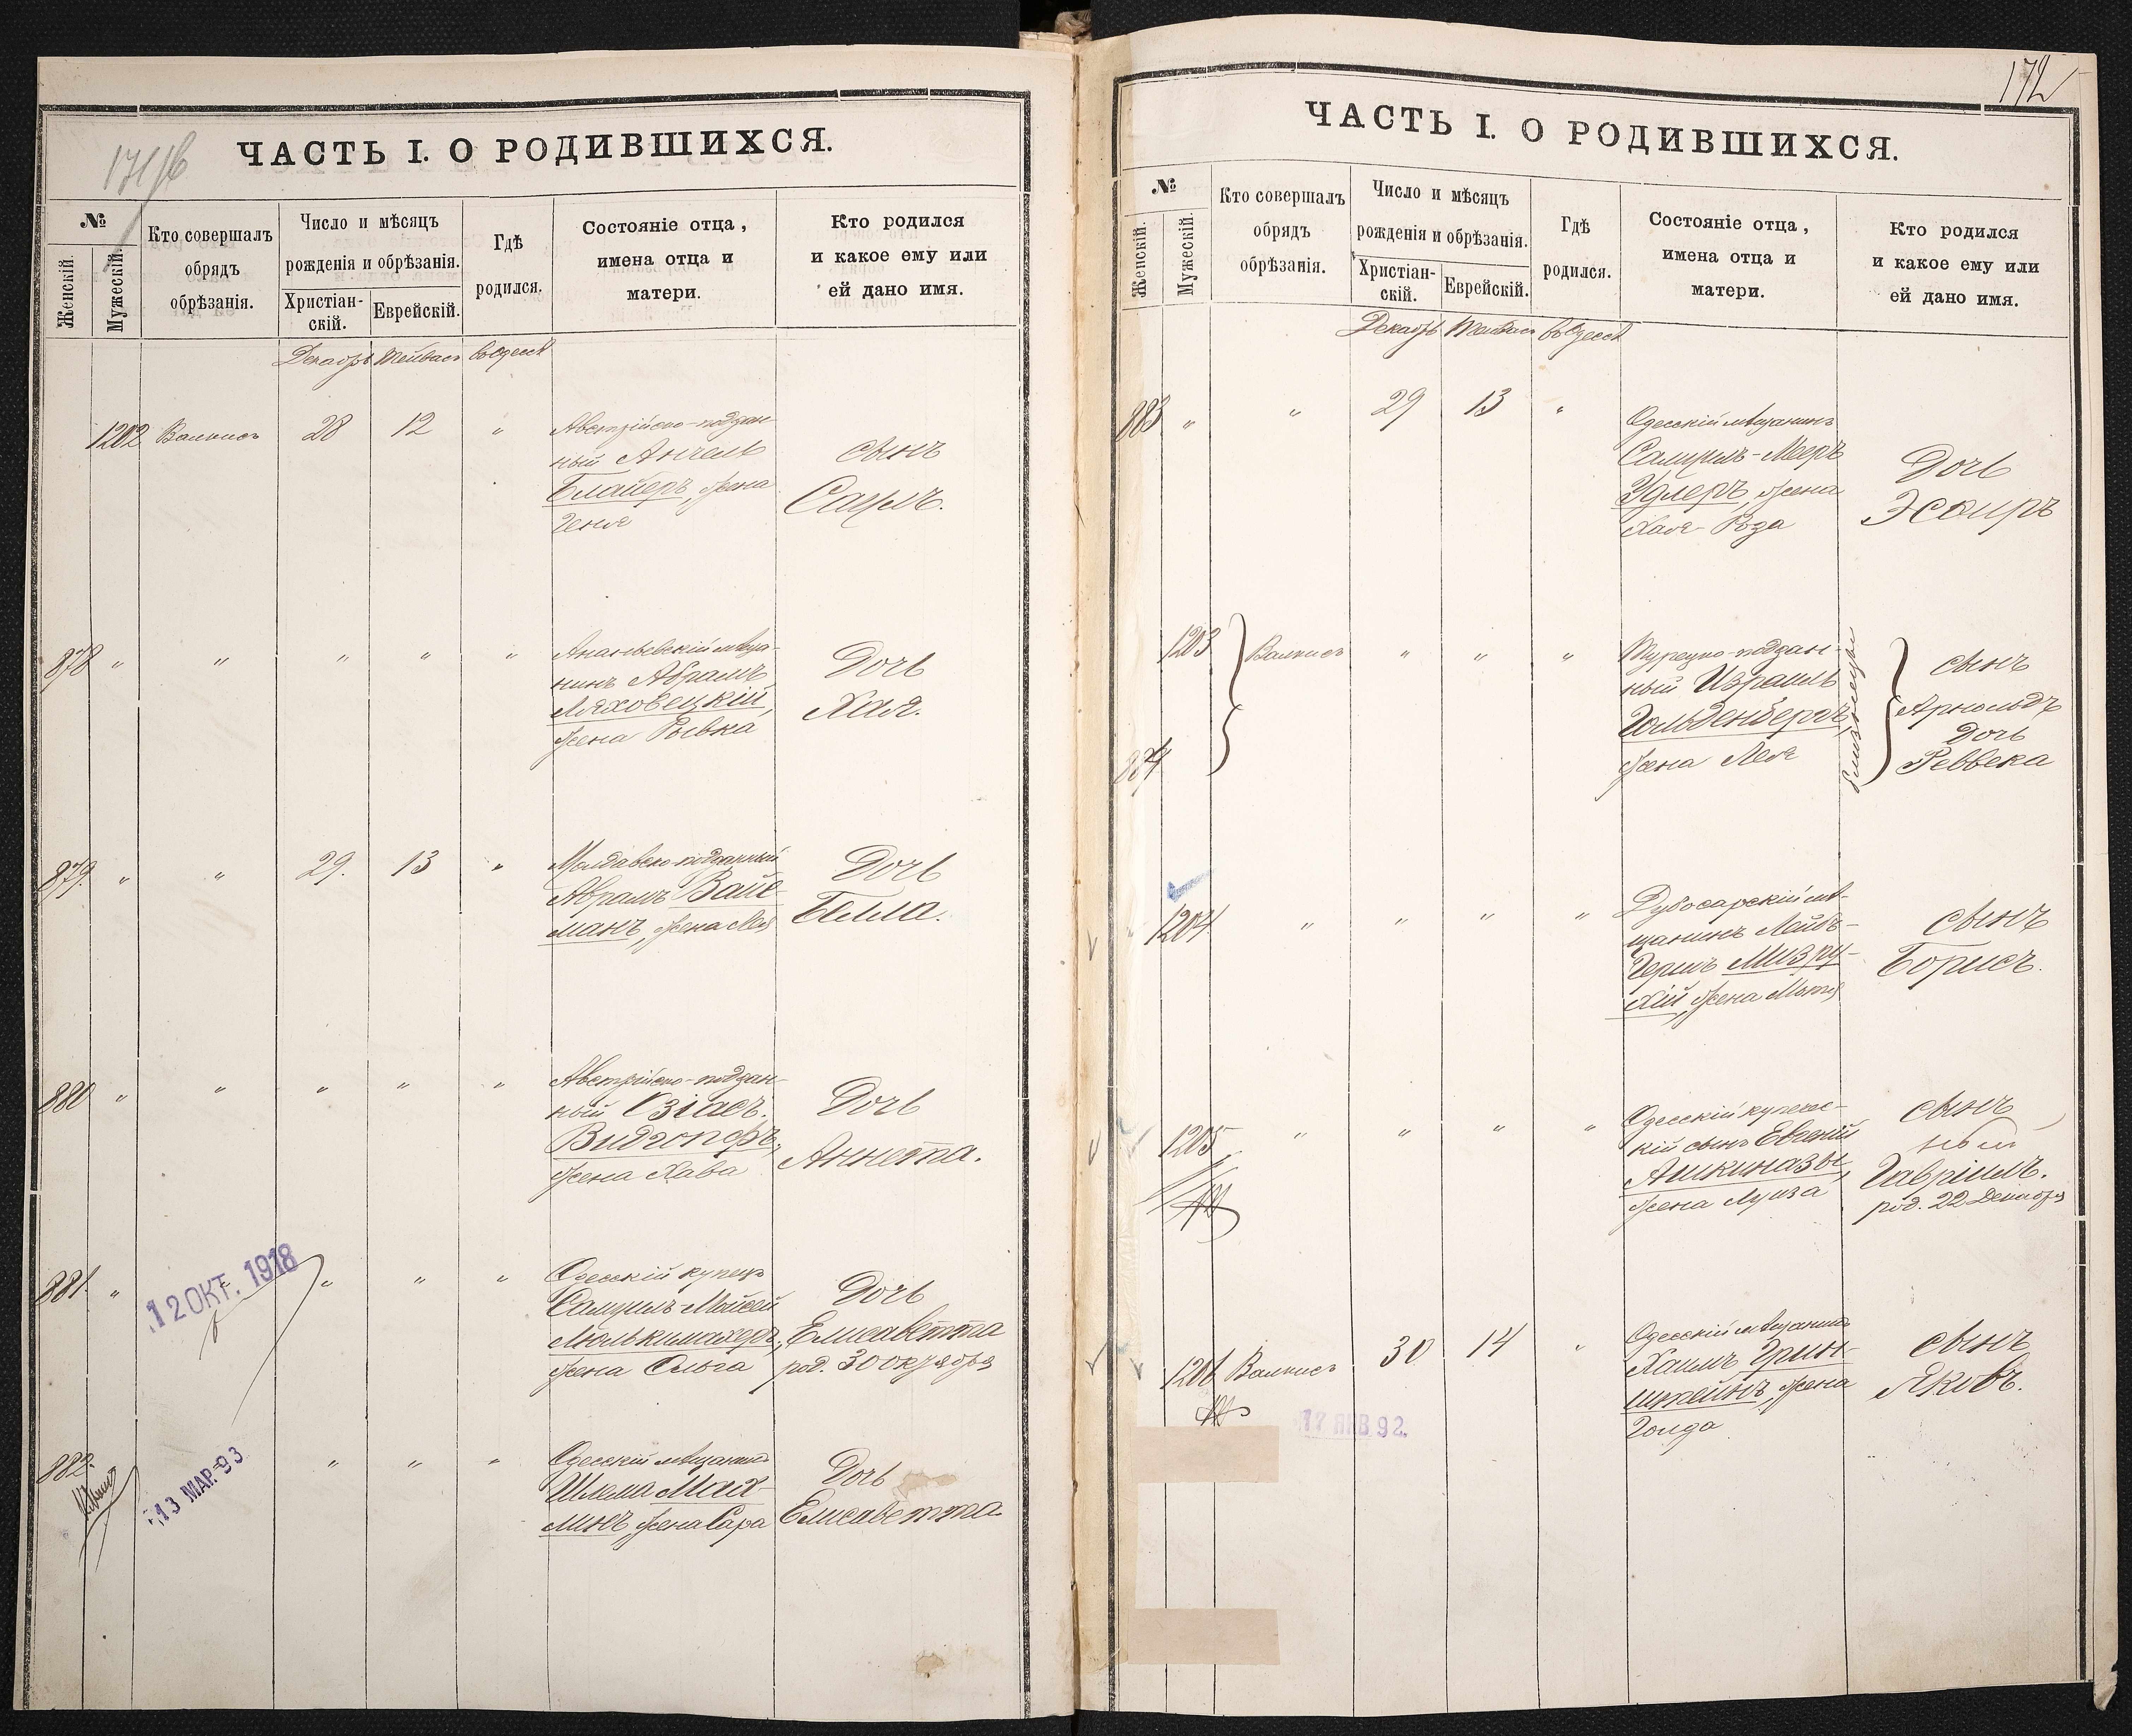 171/б
ЧАСТЬ I. О РОДИВШИХСЯ.
№
Женскій.
Мужескій.
Кто совершалъ
обрядъ
обрѣзанія.
Число и мѣсяцъ
рожденія и обрѣзанія.
Христіан-
скій.
Еврейскій.
Гдѣ
родился.
Состояніе отца,
имена отца и
матери.
Кто родился
и какое ему или
ей дано имя.
Декабрь Тейвасъ въ Одессѣ
1202 28 12 "
Австрійско-поддан-
ный
Блайеръ, жена
Геня
сынъ
Саулъ.
878 " " " " "
Ананьевскій мѣща-
нинъ Абрамъ
Ляховецкій,
жена Рывка
Дочь
Хая.
879. " " 29. 13 "
Молдавско-подданный
Абрамъ Вайс-
манъ, жена Лея
Дочь
Белла.
880 " " " " "
Австрійско-поддан-
ный Озіасъ
Видгопфъ,
жена Хава
Дочь
Аннета.
881. " " " "
12 ОКТ. 1918
Одесскій купецъ
Самуилъ-Мойсей
Люлькимахеръ,
жена Ольга
Дочь
Елисаветта
род. 30 октября
882. " " "
13 МАР. 93
Одесскій мѣщанинъ
Шлема Мах-
линъ, жена Сара
Дочь
Елисаветта
172
ЧАСТЬ I. О РОДИВШИХСЯ.
№
Женскій.
Мужескій.
Кто совершалъ
обрядъ
обрѣзанія.
Число и мѣсяцъ
рожденія и обрѣзанія.
Христіан-
скій.
Еврейскій.
Гдѣ
родился.
Состояніе отца,
имена отца и
матери.
Кто родился
и какое ему или
ей дано имя.
Декабрь Тейвасъ въ Одессѣ
883 " " 29 13 "
Одесскій мѣщанинъ
Самуилъ-Мееръ
Удлеръ, жена
Хая-Роза
Дочь
Эсѳиръ
1203 " " "
884
Турецко-поддан-
ный Израиль
Гольденбергъ,
жена Лея
близнецы
сынъ
Арнольдъ
Дочь
Реввека
1204 " " " "
Дубосарскій мѣ-
щанинъ Лейбъ-
Гершъ Мизру-
хій, жена
сынъ
Борисъ.
1205 " " " "
Одесскій купечес-
кій сынъ Евгеній
Ашкинази,
жена Луиза
сынъ
Гавріилъ.
род. 22 Декабря
1206 30 14 "
17 ЯНВ 92.
Одесскій мѣщанинъ
Хаимъ Грин-
штейнъ, жена
Голда
сынъ
Яковъ.